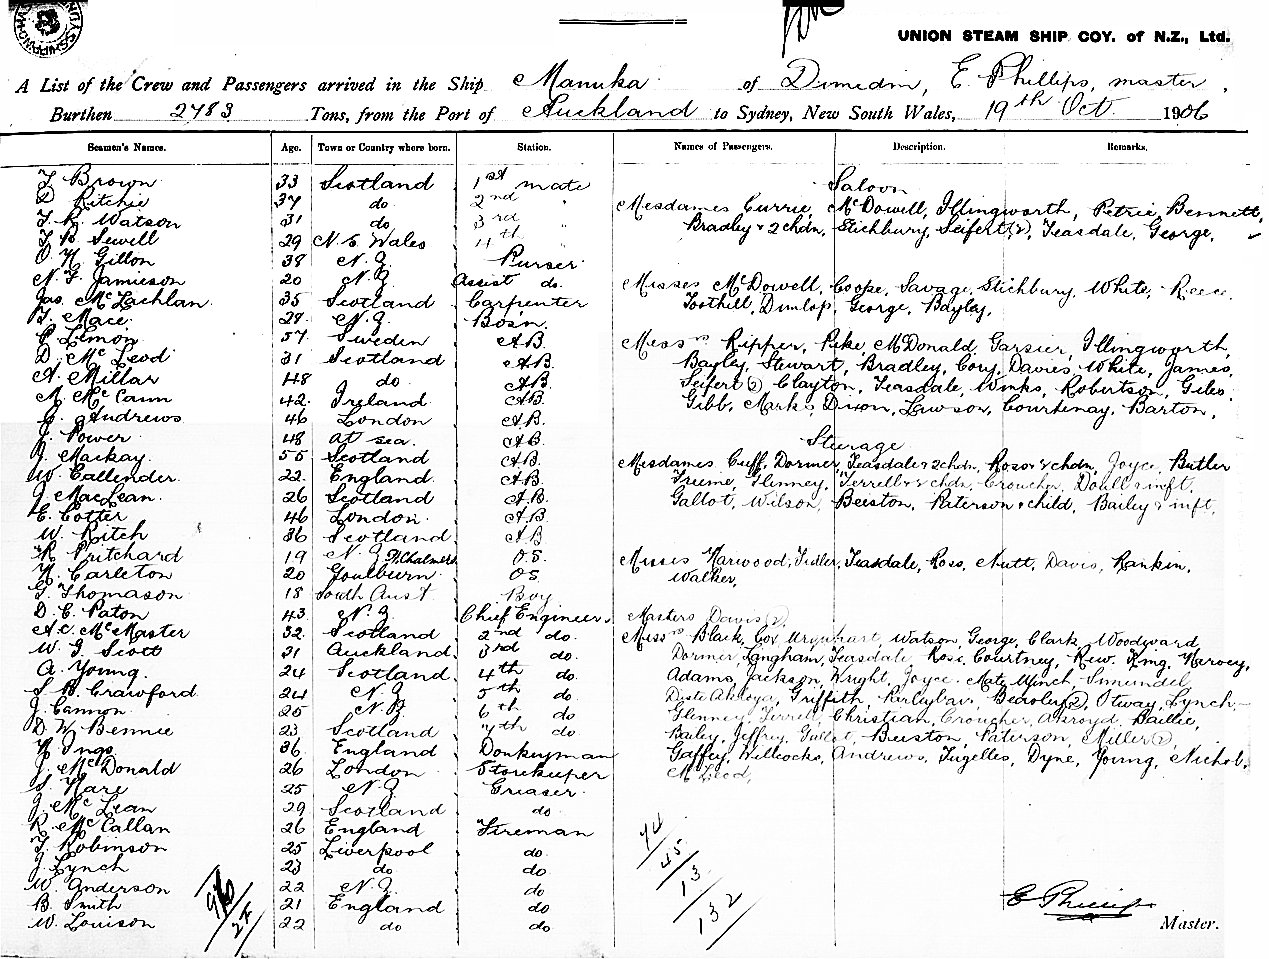 UNION STEAM SHIP COY. of N.Z., Ltd.
A List of the Crew and Passengers arrived in the Ship Manuka of Dunedin, E. Phillips, master,
Burthen 2783 Tons, from the Port of Auckland to Sydney, New South Wales, 19th Oct. 1906
Seamen's Names. Age. Town or Country where born. Station. Names of Passengers. Description. Remarks.
T Brown 33 Scotland 1st mate
D Ritchie 37 do 2nd "
T. R. Watson 31 do 3rd "
Sewell 29 N. S. Wales 4th "
Gillon 38 N. Z. Purser
N. F. Jamieson 20 N. Z. Assist do.
Jas. McLachlan 35 Scotland Carpenter
Mace 28 N. Z. Bosn.
Lemon 57 Sweden A.B.
D. McLeod 31 Scotland A.B.
A. Millar 48 do. A.B.
McCann 42 Ireland A.B.
Andrews 46 London A.B.
J. Power 48 at sea. A.B.
J. Mackay 55 Scotland A.B.
W. Callender 22 England A.B.
J. MacLean 26 Scotland A.B.
E. Cotter 46 London A.B.
W. Ritch 36 Scotland A.B.
R Pritchard 19 N. Z. Pt Chalmers O.S.
Carleton 20 Goulburn O.S.
Thomason 18 South Aust Boy
D. C. Paton 43 N. Z. Chief Engineer.
A. C. McMaster 32 Scotland 2nd do.
W. J. Scott 31 Auckland 3rd do.
A. Young 24 Scotland 4th do.
Crawford 24 N. Z. 5th do
J. Cannon 25 N. Z. 6th do
D. W. Bennie 23 Scotland 7th do
Ings 36 England Donkeyman
J. McDonald 26 London Storekeeper
Hare 25 N. Z. Greaser
J. McLean 29 Scotland do.
R. McCallan 26 England Fireman
T. Robinson 25 Liverpool do
J. Lynch 23 do do
W. Anderson 22 N. Z. do
B. Smith 21 England do
W. Louison 22 do do
Saloon
Mesdames Currie, McDowell, Illingworth, Petrie, Bennett,
Bradley & 2 chdn, Stichbury, Seifert (2), Teasdale, George,
Misses McDowell, Coope, Savage, Stichbury, White, Reece
Toothill, Dunlop, George, Bayley,
Messrs Ripper, Pike, McDonald, Garsier, Illingworth,
Bayley, Stewart, Bradley, Cory, Davies, White, James,
Seifert (2), Clayton, Teasdale, Winks, Robertson, Giles
Gibb, Marks, Dixon, Lawson, Courtenay, Barton,
Steerage
Mesdames Cuff, Dormer, Teasdale & 2 chdn, Ross & chdn, Joyce, Butler
Glenney, Terrell & chdn, Croucher, & inft,
Gallot, Wilson, Beeston, Paterson & child, Bailey & inft,
Misses Harwood, Fidler, Teasdale, Ross, Nutt, Davis, Rankin,
Walker,
Masters Davis (2)
Messrs Black, Cox, Urquhart, Watson, George, Clark, Woodward
Dormer, Langham, Teasdale, Rose, Courtney, Rew, King, Harvey,
Adams, Jackson, Wright, Joyce, Minch,
Griffith, Otway, Lynch,
Glenney, Terrell, Christian, Croucher, Baillie,
Bailey, Jeffrey, Gallot, Beeston, Paterson, Miller (2),
Gaffey, Willcocks, Andrews, Dyne, Young, Nichol,
McLeod,
74
45
13
132
E Phillips
Master.